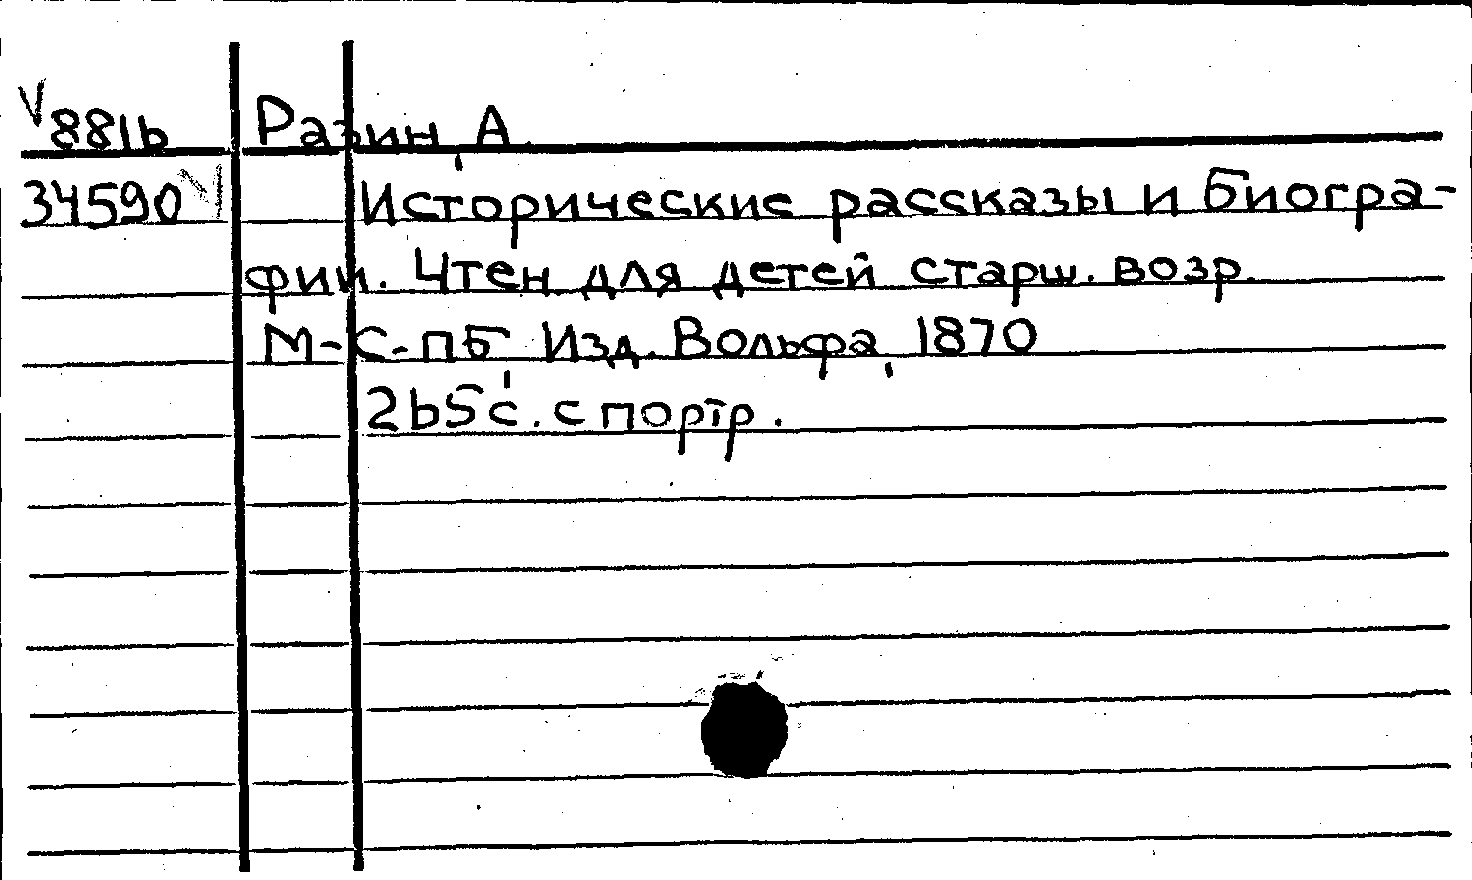 881b Разин, А.
34590 Исторические рассказы и биогра-
фии. Чтен. для детей старш. возр.
М-С-ПБ Изд. Вольфа, 1870
265 с. с портр.